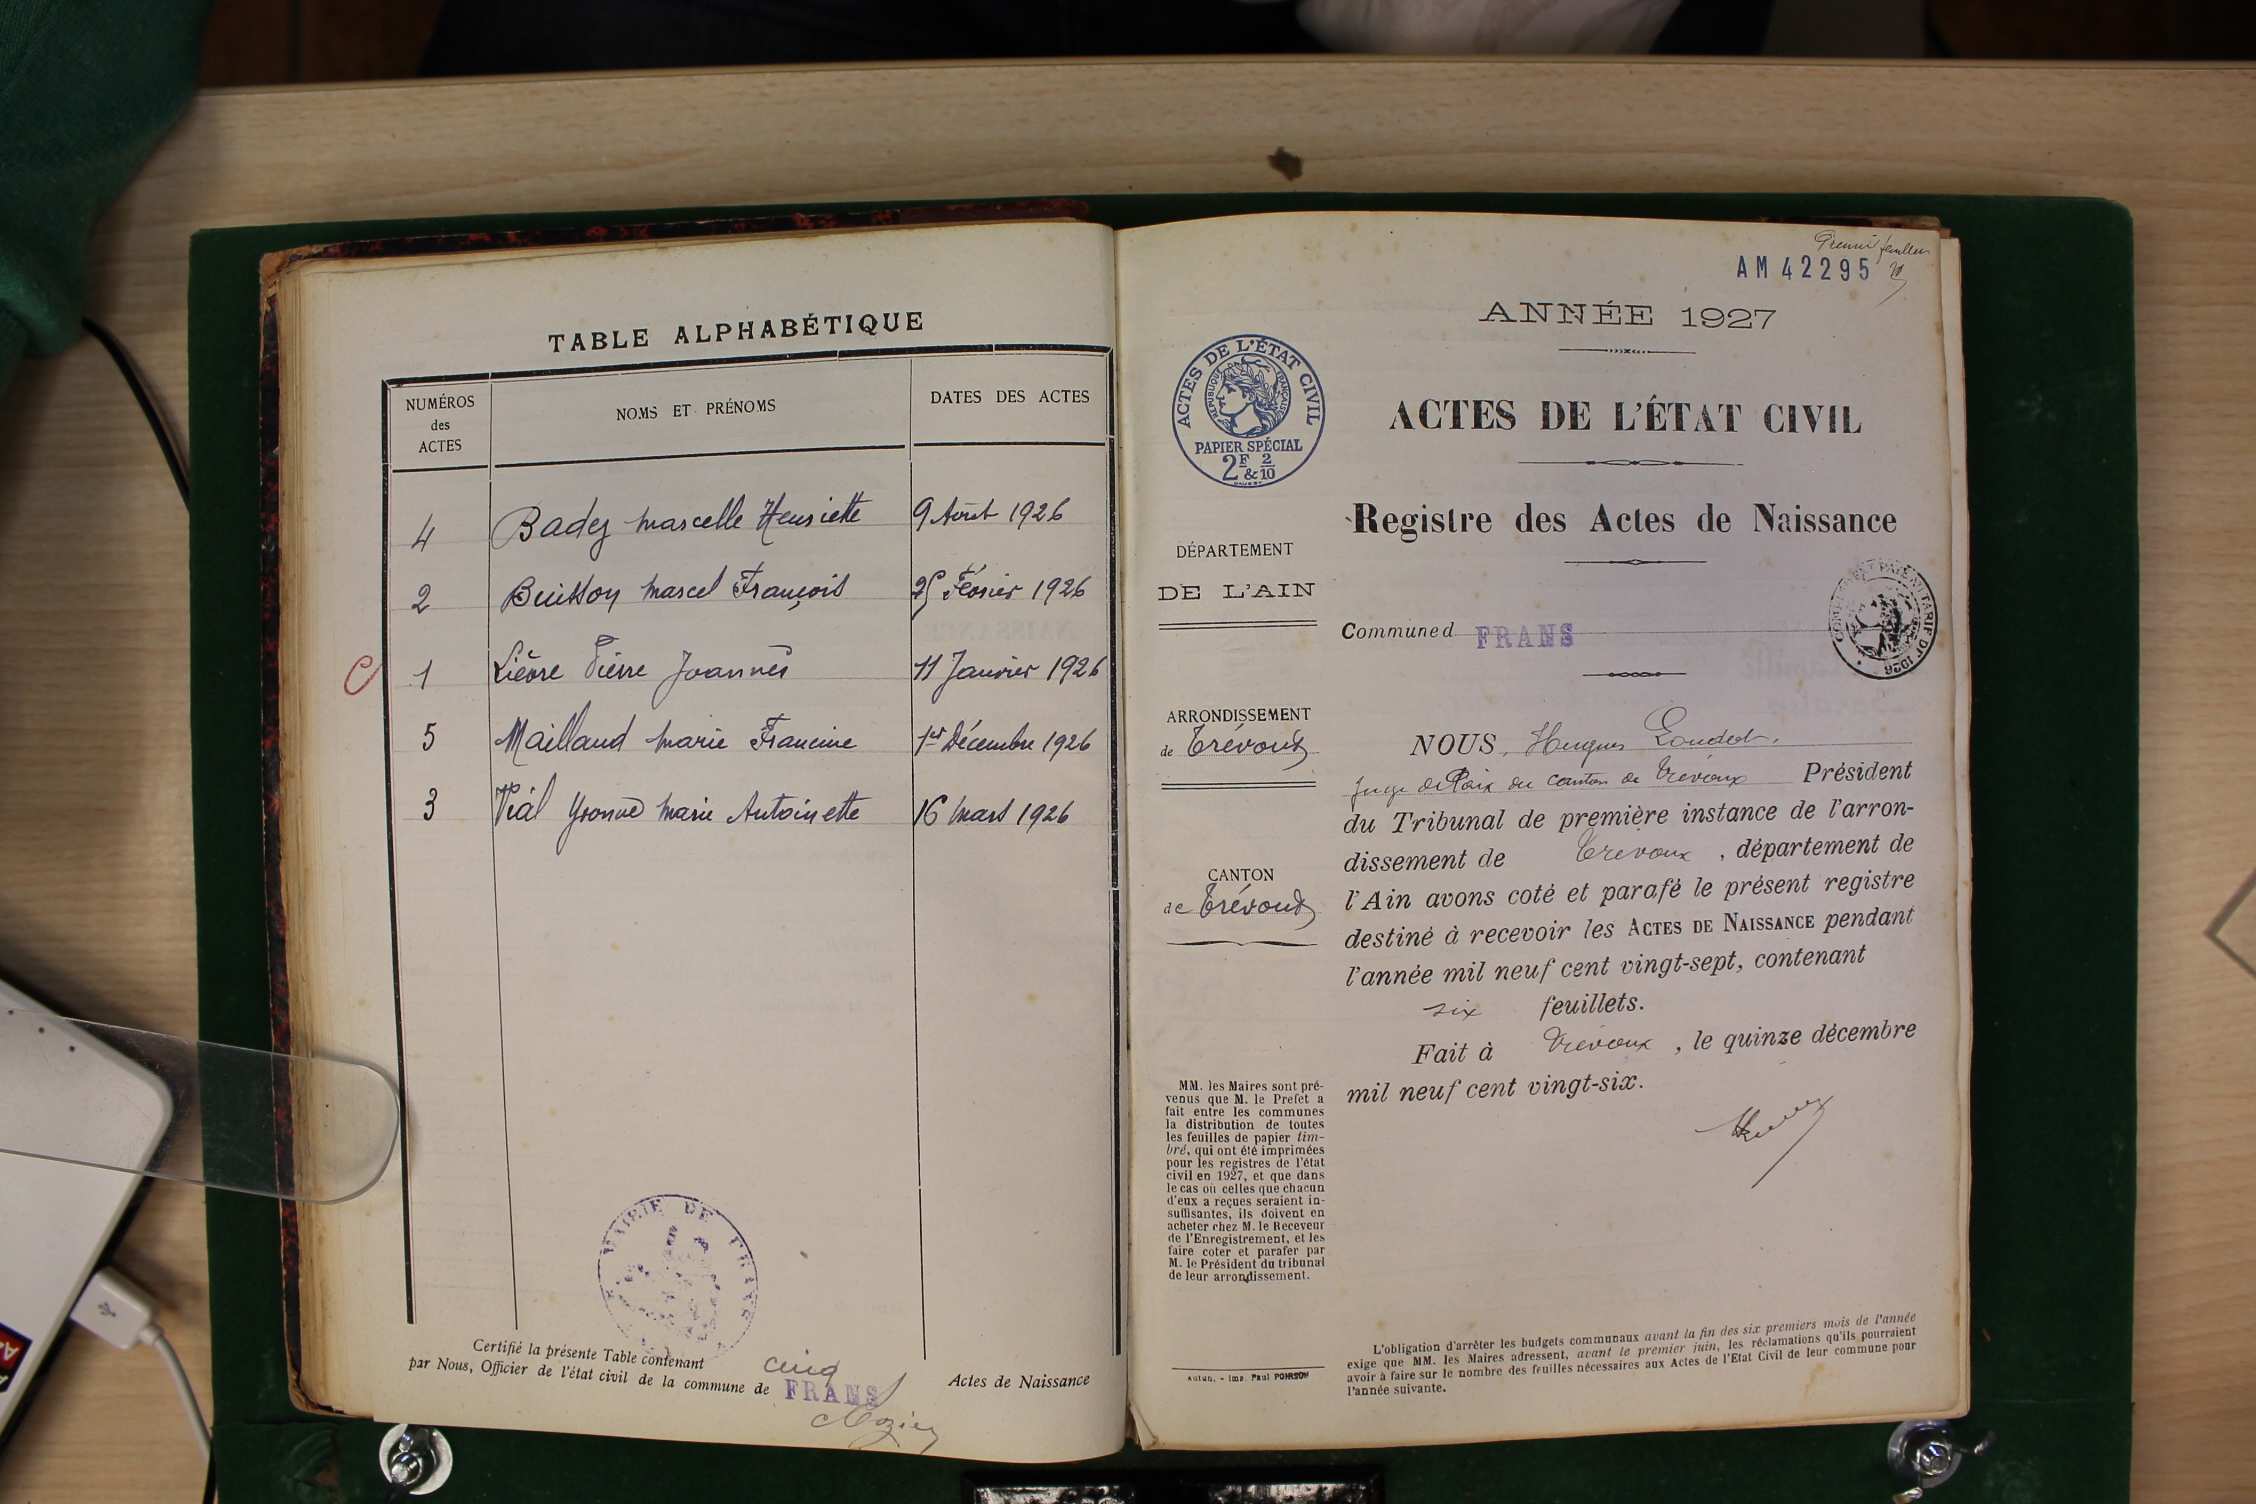 TABLE ALPHABÉTIQUE
NUMÉROS des ACTES
NOMS ET PRÉNOMS
DATES DES ACTES
4 Badez Marcelle Henriette 9 Août 1926
2 Buisson Marcel François 25 Février 1926
1 Lièvre Pierre Joannès 11 Janvier 1926
5 Maillaud Marie Francine 1er Décembre 1926
3 Vial Yvonne Marie Antoinette 16 Mars 1926
MAIRIE DE FRANS
Certifié la présente Table contenant cinq Actes de Naissance
par Nous, Officier de l'état civil de la commune de FRANS
Premier feuillet
AM 42295
ANNÉE 1927
ACTES DE L'ÉTAT CIVIL
RÉPUBLIQUE FRANÇAISE
PAPIER SPÉCIAL
2F & 2/10
DÉPARTEMENT
DE L'AIN
ARRONDISSEMENT
de Trévoux
CANTON
de Trévoux
MM. les Maires sont pré-
venus que M. le Prefet a
fait entre les communes
la distribution de toutes
les feuilles de papier tim-
bré, qui ont été imprimées
pour les registres de l'état
civil en 1927, et que dans
le cas où celles que chacun
d'eux a reçues seraient in-
suffisantes, ils doivent en
acheter chez M. le Receveur
de l'Enregistrement, et les
faire coter et parafer par
M. le Président du tribunal
de leur arrondissement.
Autun. - Imp. Paul POMRSOW
ACTES DE L'ÉTAT CIVIL
Registre des Actes de Naissance
Commune d FRANS
NOUS, Hugues
Juge de Paix du canton de Trévoux Président
du Tribunal de première instance de l'arron-
dissement de Trevoux, département de
l'Ain avons coté et parafé le présent registre
destiné à recevoir les ACTES DE NAISSANCE pendant
l'année mil neuf cent vingt-sept, contenant
six feuillets.
Fait à Trévoux, le quinze décembre
mil neuf cent vingt-six.
L'obligation d'arrêter les budgets communaux avant la fin des six premiers mois de l'année
exige que MM. les Maires adressent, avant le premier juin, les réclamations qu'ils pourraient
avoir à faire sur le nombre des feuilles nécessaires aux Actes de l'Etat Civil de leur commune pour
l'année suivante.